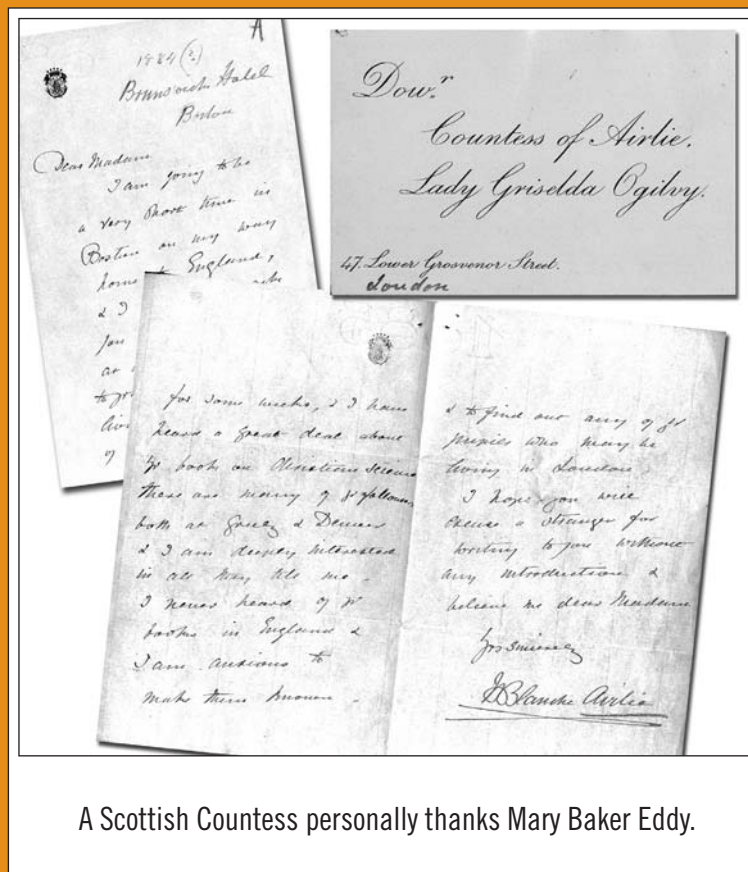 A
1884 (?)
Brunswick Hotel
Boston
Dear Madame
I am going to be
a very short time in
Boston on my way
home to England,
& I
you
at
of
Dow.r
Countess of Airlie.
Lady Griselda Ogilvy.
47. Lower Grosvenor Street.
London
for some weeks, & I have
heard a great deal about
yr book on Christian Science
there are many of yr followers
both at Greeley & Denver
& I am deeply interested
in all they tell me.
I never heard of yr
books in England &
I am anxious to
make them known.
& to find out any of yr
pupils who may be
living in London.
I hope you will
excuse a stranger for
writing to you without
any introduction &
believe me dear Madame
Yrs sincerely
Blanche Airlie
A Scottish Countess personally thanks Mary Baker Eddy.